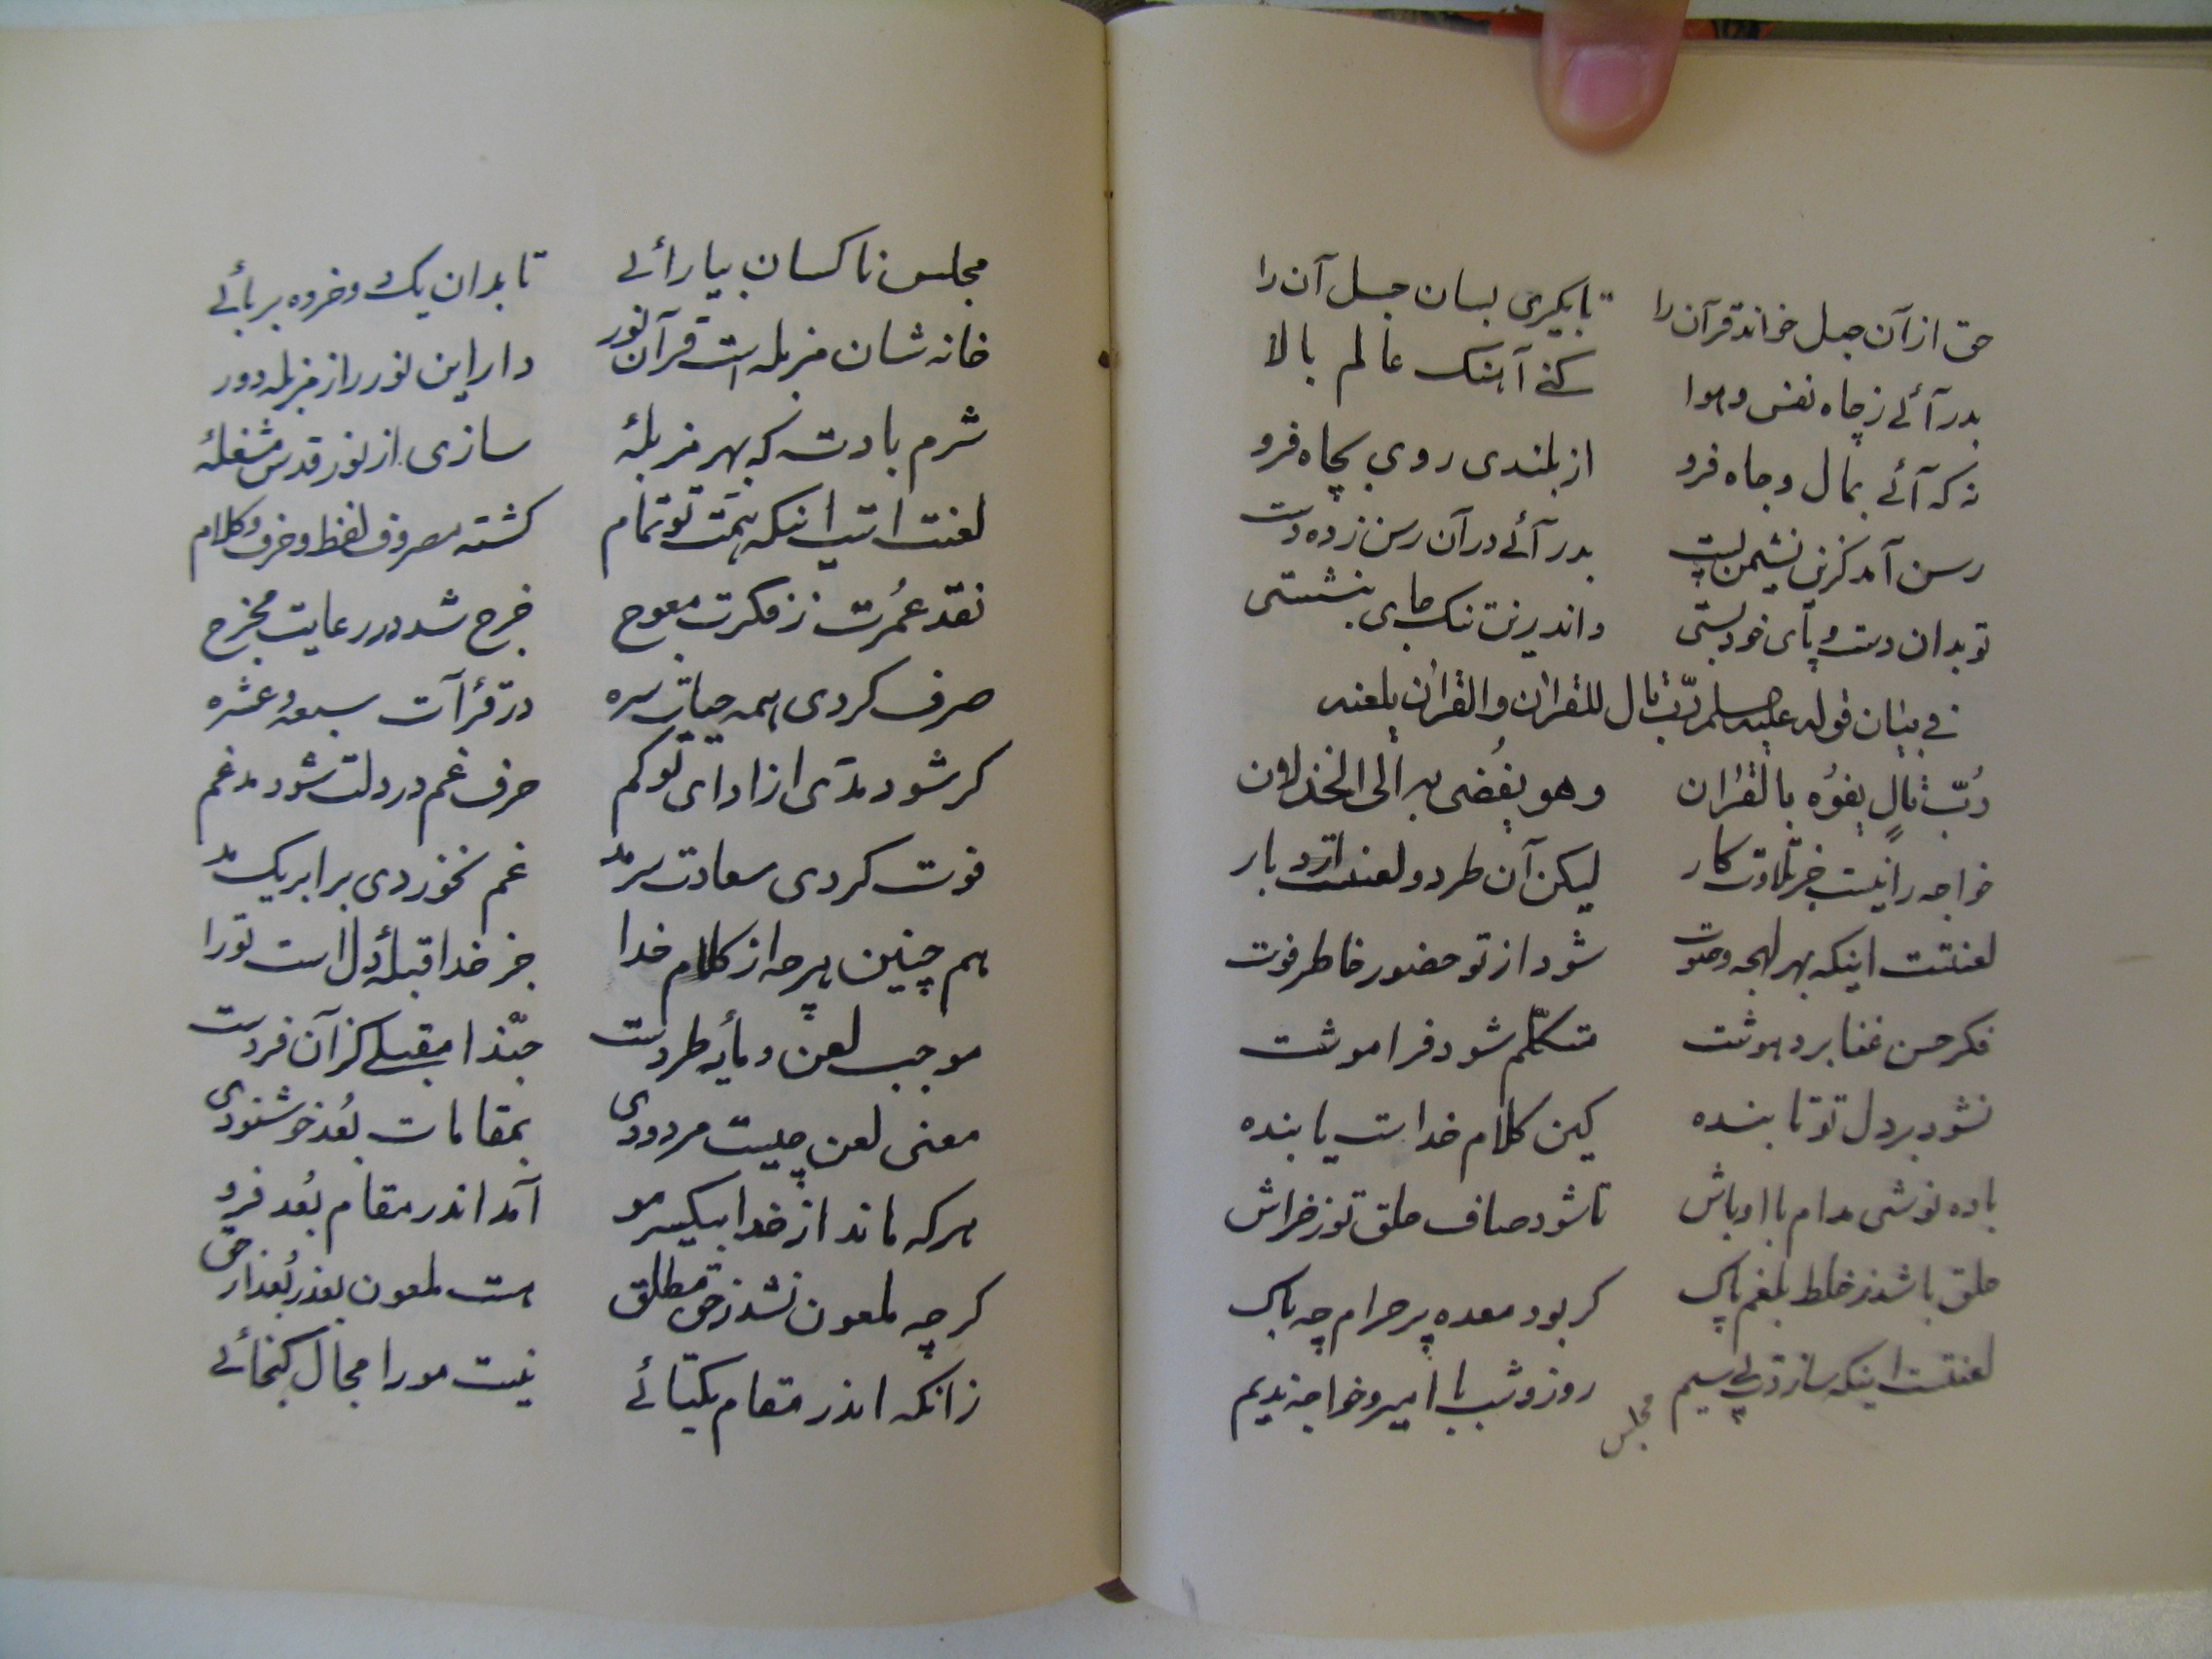 حق از آن حبل خواند قرآن را تا بگیری بسان حبل آن را
بدر آئے ز چاه نفس و هوا کنے آهنک عالم بالا
نه که آئے بمال و جاه فرو از بلندی روی بچاه فرو
رسن آمد کزین نشیمن پست بدر آئے در آن رسن زده دست
تو بدان دست و پای خود بستی و اندرین تنک جای بنشستی
فی بیان قوله علیه سلم ربّ تال للقرآن والقرآن یلعنه
رُبّ تالٍ یفوُه بالقران وهو یفُضی به الی الخذلان
خواجه را نیست جز تلاوت کار لیکن آن طرد و لعنت آرد بار
لعنتست اینکه بهر لهجه و صوت شود از تو حضور خاطر فوت
فکر حسن غنا برد هوشت متکلّم شود فراموشت
نشود بر دل تو تابنده کین کلام خداست یا بنده
باده نوشی مدام با اوباش تا شود صاف حلق تو ز خراش
حلق باشد ز خلط بلغم پاک کر بود معده پر حرام چه باک
لعنتست اینکه سازدت پی سیم روز و شب با امیر و خواجه ندیم
مجلس
مجلس ناکسان بیارائے تا بدان یک دو خرده بربائے
خانه شان مزبله است قرآن نور دار این نور را ز مزبله دور
شرم بادت که بهر مزبلهٔ سازی از نور قدس مشغلهٔ
لعنت است اینکه همّت تو تمام کشته مصروف لفظ و حرف و کلام
نقد عُمرت ز فکرت معوج خرج شد در رعایت مخرج
صرف کردی همه حیات سره در قرآت سبعه و عشره
کر شود مدّی از ادای تو کم حرف غم در دلت شود مدغم
فوت کردی سعادت سرمد غم نخوردی برابر یک مد
هم چنین هر چه از کلام خدا جز خدا قبلهٔ دل است تو را
موجب لعن و مایهٔ طردست حبّذا مقبلے کز آن فردست
معنی لعن چیست مردودی بمقامات بُعد خوشنودی
هر که ماند از خدا بیکسر مو آمد اندر مقام بُعد فرو
کر چه ملعون نشد ز حق مطلق هست ملعون بقدر بُعد از حق
زانکه اندر مقام یکتائے نیست مو را مجال کنجائے